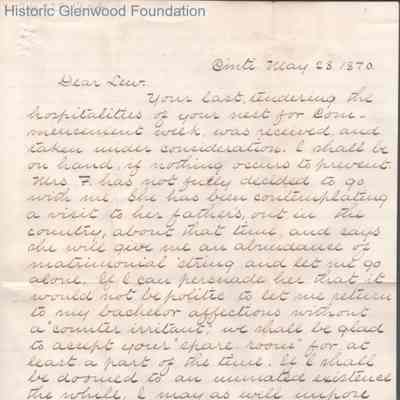 Historic Glenwood Foundation
Cinti May 28 1870.
Dear Lew.
Your last, tendering the
hospitalities of your nest for Com-
mencement week, was received and
taken under consideration. I shall be
on hand, if nothing occurs to prevent.
Mrs. F. has not fully decided to go
with me, she has been contemplating
a visit to her fathers, out in the
country, about that time, and says
she will give me an abundance of
matrimonial string and let me go
alone. If I can persuade her that it
would not be politic to let me return
to my bachelor affections without
a "counter irritant", we shall be glad
to accept your "spare room" for at
least a part of the time. If I shall
be doomed to an unmated existence
the while, I may as well impose